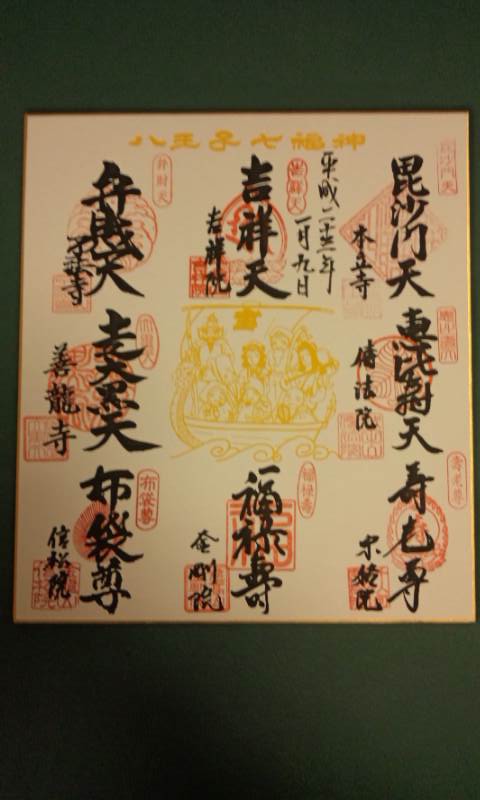 八王子七福神
毘沙門天
毘沙門天
本立寺
平成二十三年
一月九日
吉祥天
吉祥天
吉祥院
弁財天
弁財天
了法寺
恵比寿天
傳法院
寳
走大黒天
善龍寺
寿老尊
寿老尊
宗格院
福禄寿
福禄壽
金剛院
布袋尊
布袋尊
信松院